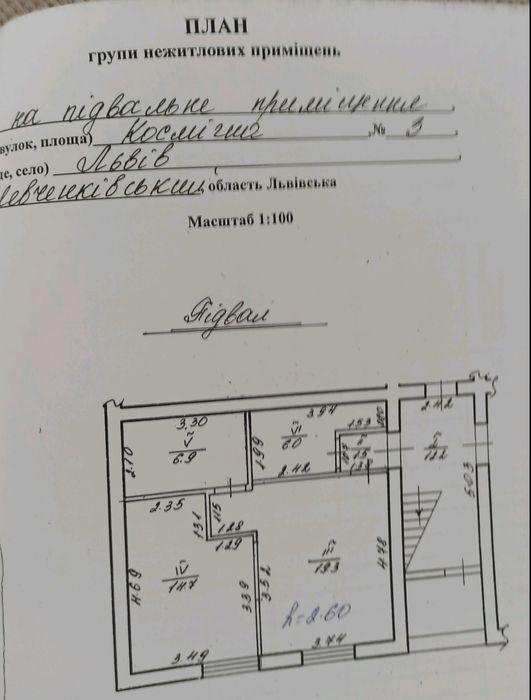 ПЛАН
групи нежитлових приміщень
на підвальне приміщення
вулок, площа) Космічна, № 3
це, село) Львів
Шевченківський, область Львівська
Масштаб 1:100
Підвал
3.30
3.94
1.53
2.42
V
6.9
2.10
1.99
VI
6.0
II
1.5
I
12.2
5.03
2.42
2.35
1.31
1.15
1.28
1.29
IV
14.7
III
19.3
4.78
4.69
3.39
3.52
h=2.60
3.49
3.74